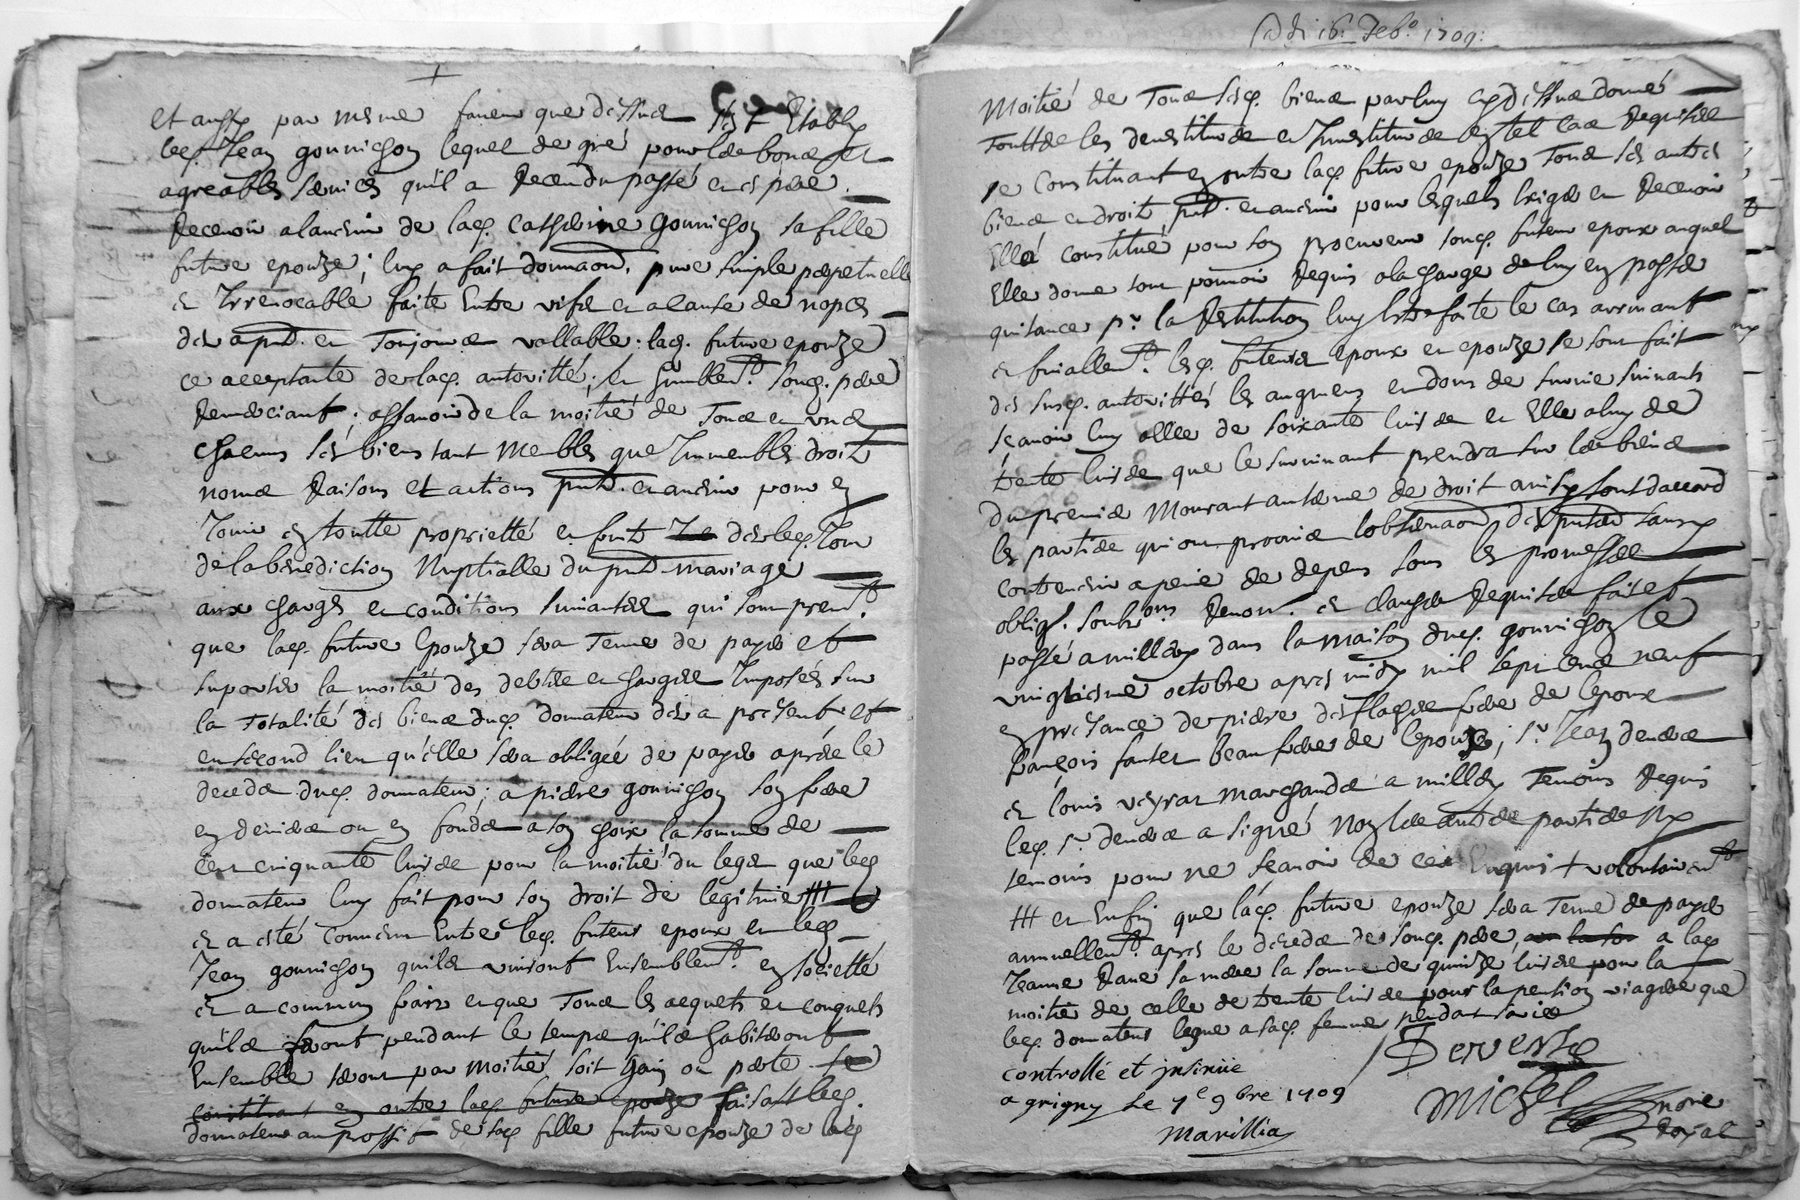 et aussy par mesme faveur que dessus s'est Estably
led. Jean gounichon lequel de gré pour les bons et
agreables services qu'il a Receu du passé et espere
Recevoir a l'advenir de lad. Catherine gounichon sa fille
future epouze; luy a fait donnaon. pure simple perpetuelle
et Irrevocable faite Entre vifs et a cause de nopces
des apnt. et Toujours vallable. lad. future epouze
ce acceptante de lad. autoritté; et humblemt. soud. pere
Remerciant; assavoir de la moitié de Tous et uns
chacuns ses biens tant Mebles que Immeubles droits
noms Raisons et actions pnts. et advenir pour en
Jouir en toutte proprietté et fruits des led. Jour
de la benediction Nuptialle du pnt mariage
aux charges et conditions suivantes qui sont premt.
que lad. future Epouze sera Tenue de payer et
suporter la moitié des debtes et charges Imposés sur
la Totalité des biens dud. donnateur des a present, et
en second lieu qu'elle sera obligée de payer aprés le
deceds dud. donnateur; a pierre gounichon son frere
en deniers ou en fonds a son choix la somme de
cent cinquante livres pour la moitié du legat que led
donnateur luy fait pour son droit de legitime ///
et a esté convenu Entre led. futeurs epoux et led.
Jean gounichon quils vivront Ensemblemt. en societté
et a commun fraix et que Tous les acquets et conquets
qu'ils feront pendant le temps quils habiteront
Ensemble seront par moitié soit gain ou perte se
constituant en outre lad. future epouze faisant led.
donnateur au proffit de sad. fille future epouze de lad
@di 16. Feb.o 1709:
Moitié de Tous sesd. biens par luy cy dessus donné
Touttes les devestitures et Investitures en tel cas Requises
se constituant en outre lad. future epouze Tous ses autres
biens et droits pnts. et advenir pour lesquels Exiger et Recevoir
Elle constitué pour son procureur soud. futeur epoux auquel
Elle donne tout pouvoir Requis a la charge de luy en passer
quitance pr. la Restitution luy Estre faite le cas arrivant
et finallemt. lesd. futeurs epoux et epouze se sont fait
des susd. autorittés les augmens et dons de survie suivants
scavoir luy a Elle de soixante livres et Elle a luy de
trente livres que le survivant prendra sur les biens
du premier Mourant au terme de droit ainsy sont d'accord
les parties qui ont promis l'observaon des pntes sans y
contrevenir a peine de depens sous les promesses
oblig. soubons Renon. et clauses Requises fait et
passé a millery dans la maison dud. gounichon Ce
vingtiesme octobre apres midy mil sept cens neuf
en presance de pierre desflaches frere de l'epoux
françois fautet beau frere de l'epouze; sr. Jean
et louis veyrat marchands a millery Temoins Requis
led. sr. a signé Non les autres parties ny
temoins pour ne scavoir de ce Enquis + volontairemt
/// et Enfin que lad. future epouze sera Tenue de payer
annuellemt. apres le deceds de soud. pere, a lad
Jeanne Rane sa mere la somme de quinze livres pour la
moitié de celle de trente livres pour la pention viagere que
led. donnateur legue a sad. femme pendant sa vie
controllé et insinué
a grigny le 7e 9bre 1709
Marillia
Michel
nore
royal